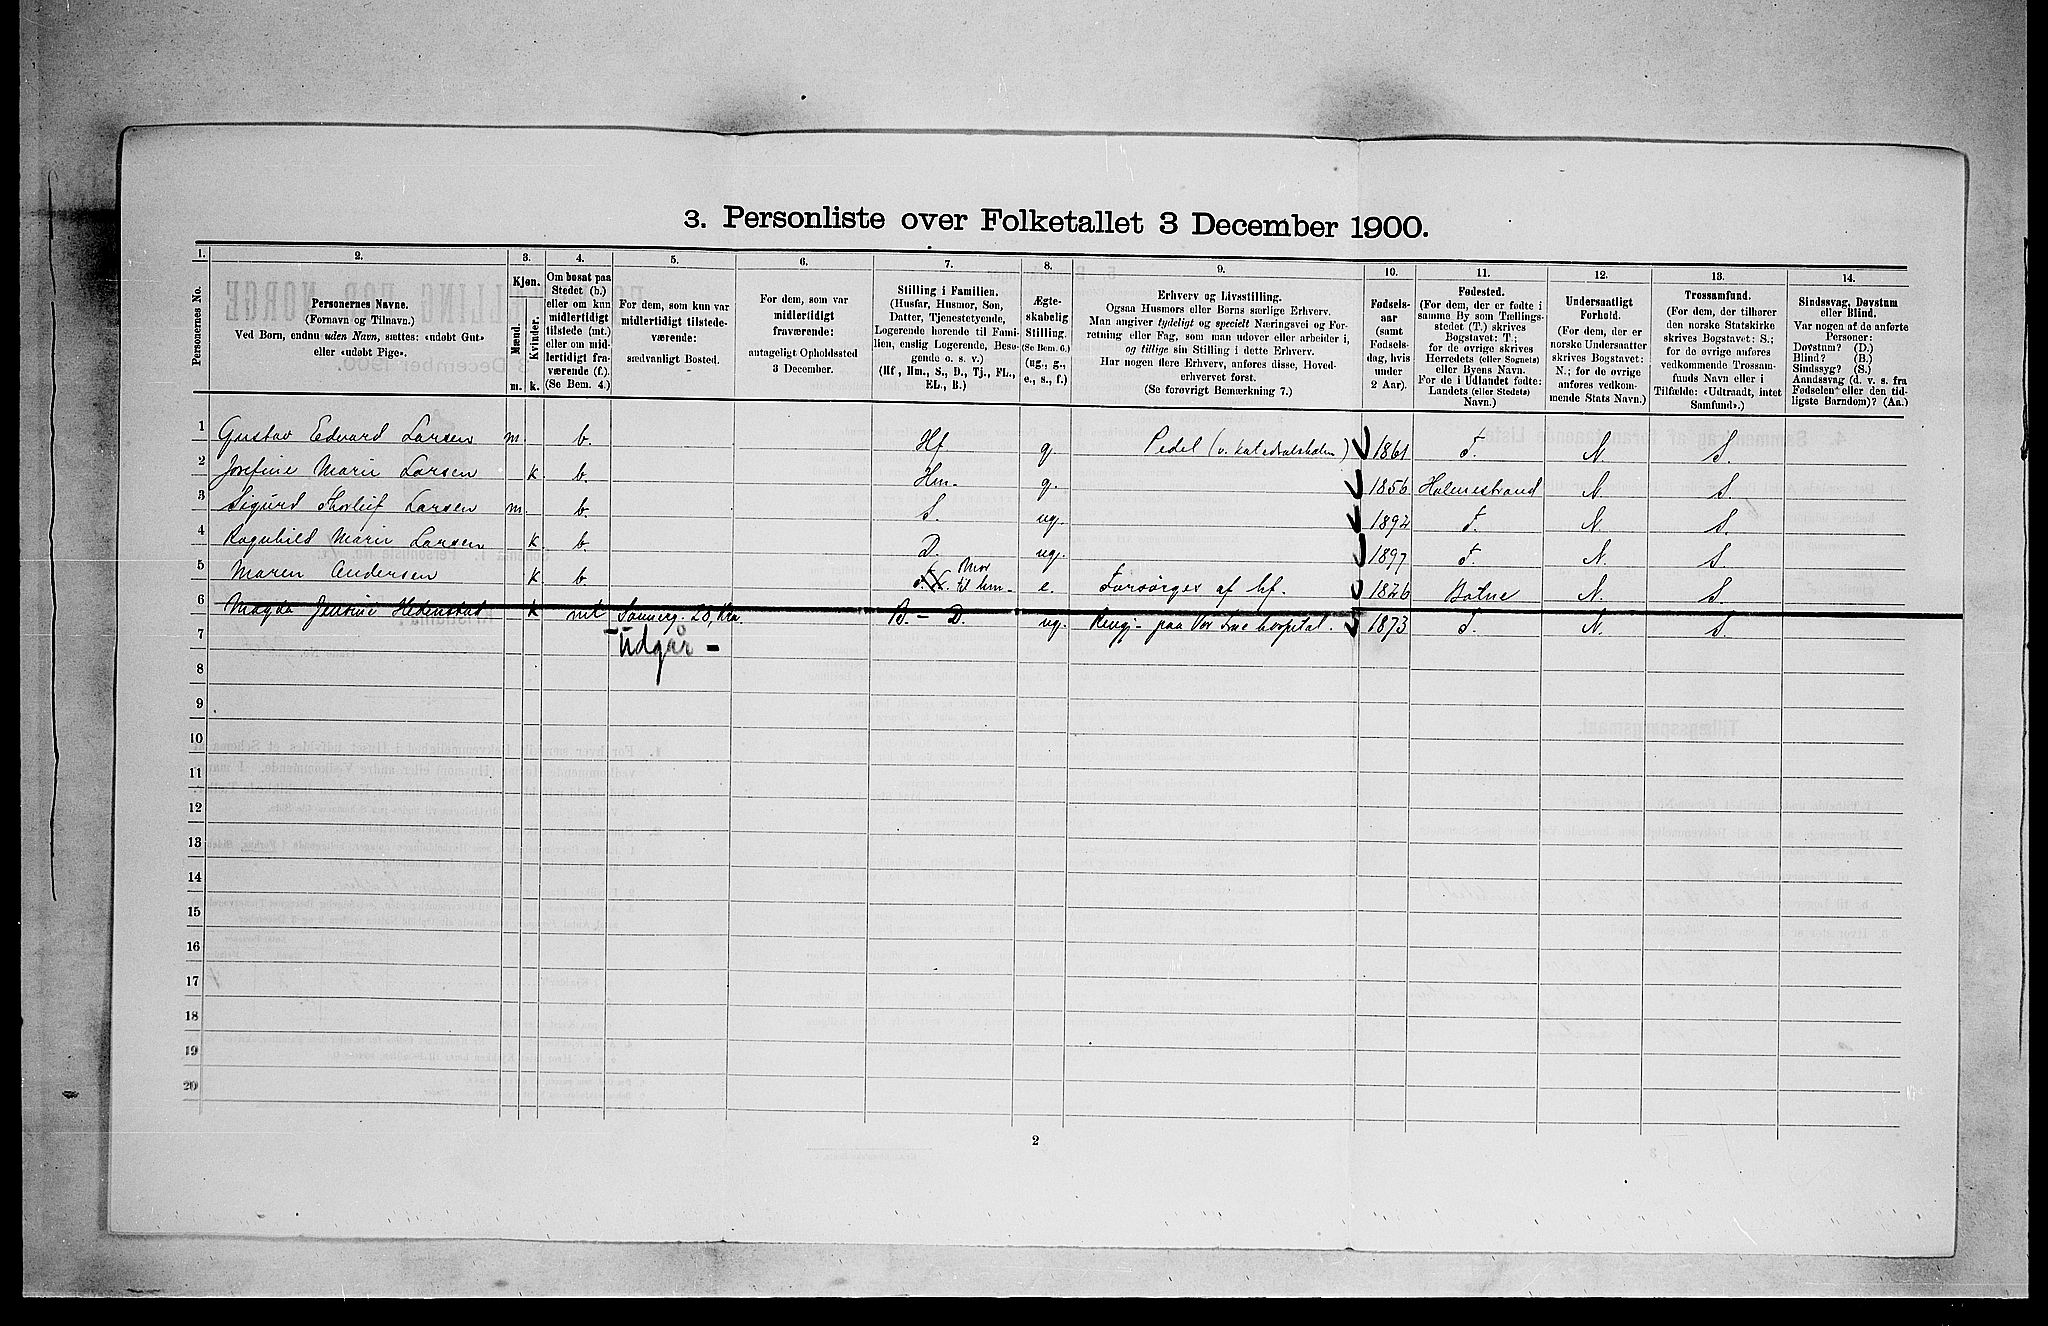 3. Personliste over Folketallet 3 December 1900.
1. 2. 3. 4. 5. 6. 7. 8. 9. 10. 11. 12. 13. 14.
Personernes No.
Personernes Navne.
(Fornavn og Tilnavn.)
Ved Børn, endnu uden Navn, sættes: «udøbt Gut»
eller «udøbt Pige».
Kjøn.
Mænd.
Kvinder.
m. k.
Om bosat paa
Stedet (b.)
eller om kun
midlertidigt
tilstede (mt.)
eller om mid-
lertidigt fra-
værende (f.)
(Se Bem. 4.)
For dem, som kun var
midlertidigt tilstede-
værende:
sædvanligt Bosted.
For dem, som var
midlertidigt
fraværende:
antageligt Opholdssted
3 December.
Stilling i Familien.
(Husfar, Husmor, Søn,
Datter, Tjenestetyende,
Logerende hørende til Fami-
lien, enslig Logerende, Besø-
gende o. s. v.)
(Hf, Hm., S., D., Tj., FL.,
EL., B.)
Ægte-
skabelig
Stilling.
(Se Bem. 6.)
(ug., g.,
e., s., f.)
Erhverv og Livsstilling.
Ogsaa Husmors eller Børns særlige Erhverv.
Man angiver tydeligt og specielt Næringsvei og For-
retning eller Fag, som man udøver eller arbeider i,
og tillige sin Stilling i dette Erhverv.
Har nogen flere Erhverv, anføres disse, Hoved-
erhvervet først.
(Se forøvrigt Bemærkning 7.)
Fødsels-
aar
(samt
Fødsels-
dag, hvis
under
2 Aar).
Fødested.
(For dem, der er fødte i
samme By som Tællings-
stedet (T.) skrives
Bogstavet: T.;
for de øvrige skrives
Herredets (eller Sognets)
eller Byens Navn.
For de i Udlandet fødte:
Landets (eller Stedets)
Navn.)
Undersaatligt
Forhold.
(For dem, der er
norske Undersaatter
skrives Bogstavet:
N.; for de øvrige
anføres vedkom-
mende Stats Navn.)
Trossamfund.
(For dem, der tilhører
den norske Statskirke
skrives Bogstavet: S.;
for de øvrige anføres
vedkommende Trossam-
funds Navn eller i
Tilfælde: «Udtraadt, intet
Samfund».)
Sindssvag, Døvstum
eller Blind.
Var nogen af de anførte
Personer:
Døvstum? (D.)
Blind? (B.)
Sindssyg? (S.)
Aandssvag (d. v. s. fra
Fødselen eller den tid-
ligste Barndom)? (Aa.)
1 Gustav Edvard Larsen m. b. Hf g. Pedel (v. katedralskolen) 1861 T. N. S.
2 Josefine Marie Larsen k. b. Hm. g. 1856 Holmestrand N. S.
3 Sigurd Thorleif Larsen m. b. S. ug. 1892 T. N. S.
4 Ragnhild Marie Larsen k. b. D. ug. 1897 T. N. S.
5 Maren Andersen k b Mor til hm. e. Forsørges af hf. 1826 Botne N. S.
6 Magda Jensine Hedenstad k mt Sannerg. 20, Kra. B. - D. ug. Rengj. paa Vor Frue hospital. 1873 T. N. S.
7 - Udgår -
8
9
10
11
12
13
14
15
16
17
18
19
20
2